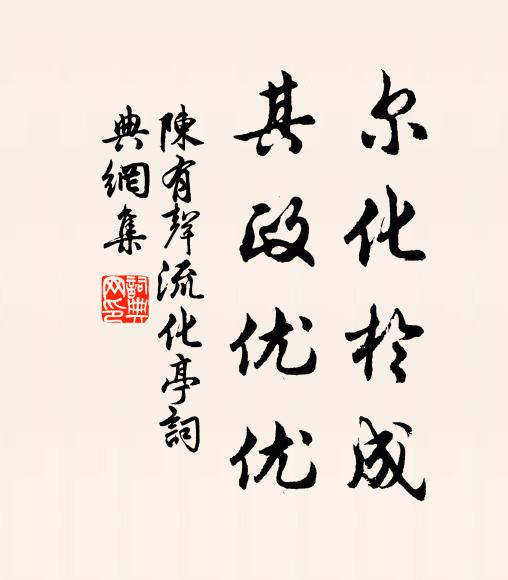 尔化於成
其政优优
陳有聲流化亭詞
典網集
詞典網印